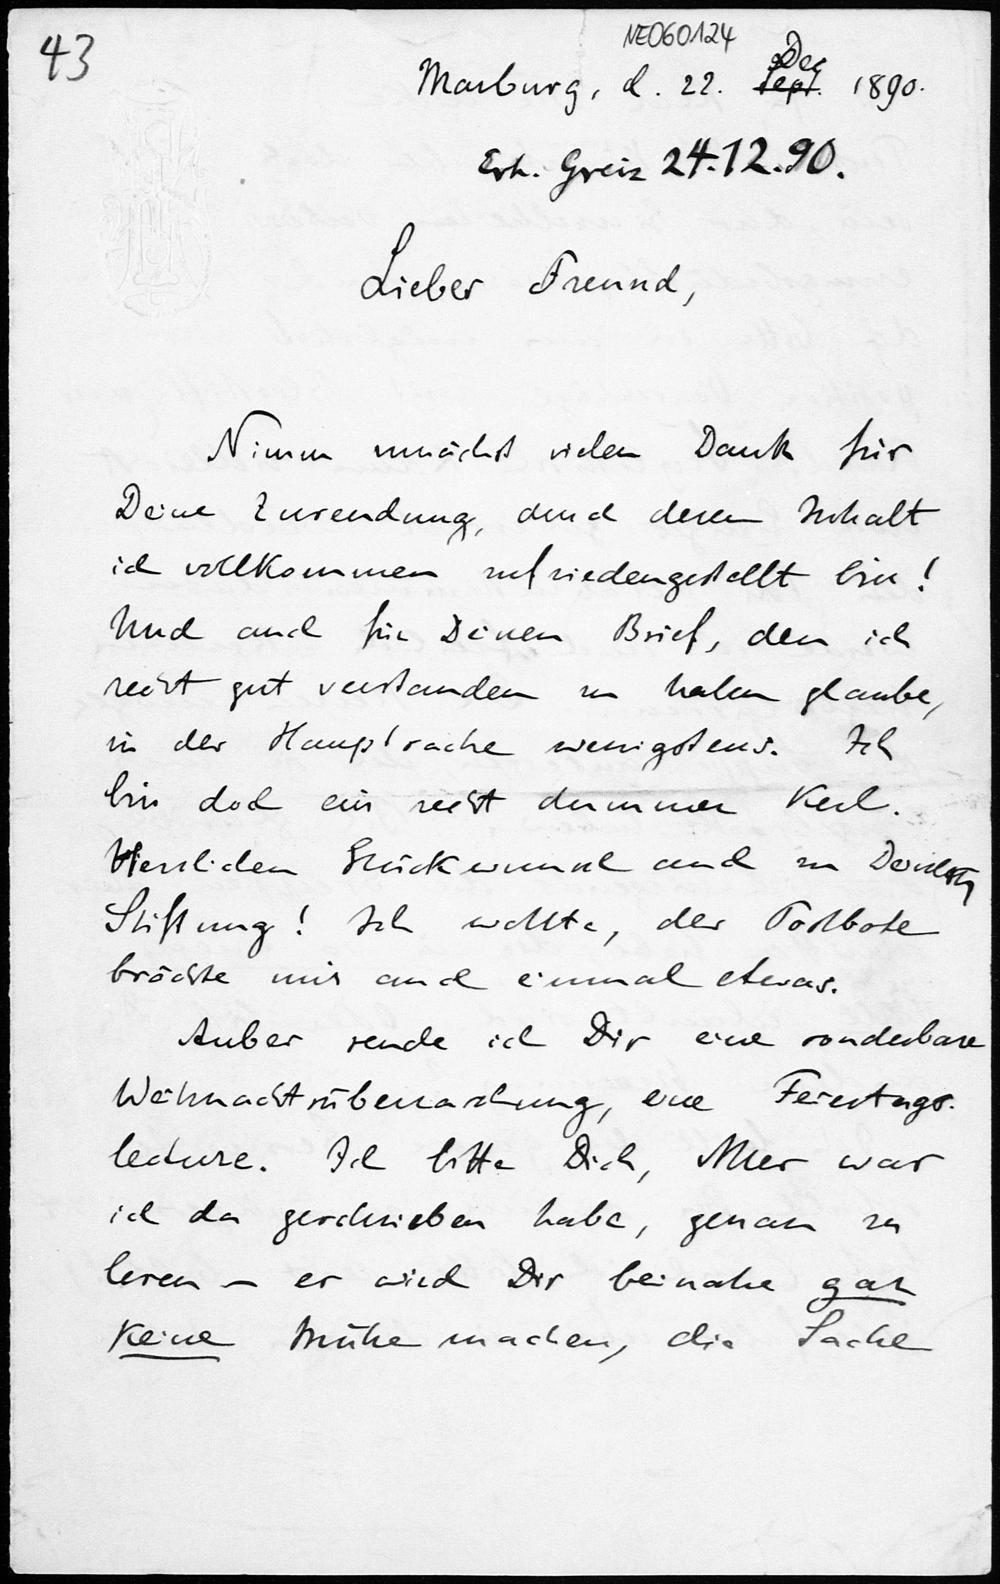 43
NE060124
Marburg, d. 22. Dec
Sept. 1890.
Erh. Greiz 24.12.90.
Lieber Freund,
Nimm zunächst vielen Dank für
Deine Zusendung, durch deren Inhalt
ich vollkommen zufriedengestellt bin!
Und auch für Deinen Brief, den ich
recht gut verstanden zu haben glaube,
in der Hauptsache wenigstens. Ich
bin doch ein recht dummer Kerl.
Herzlichen Glückwunsch auch zu
Stiftung! Ich wollte, der Postbote
brächte mir auch einmal etwas.
Anbei sende ich Dir eine sonderbare
Weihnachtsüberraschung, eine Feiertags-
lecture. Ich bitte Dich, Alles was
ich da geschrieben habe, genau zu
lesen – es wird Dir beinahe gar
keine Mühe machen, die Sache